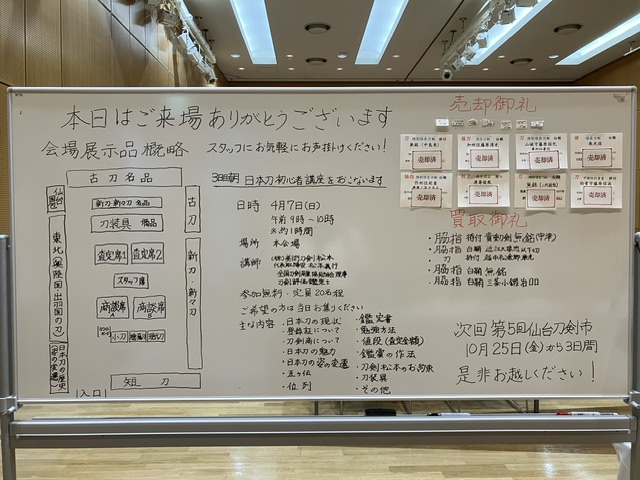 本日はご来場ありがとうございます
会場展示品概略 スタッフにお気軽にお声掛けください!
古刀名品
仙台
新刀新々刀名品
刀装具 備品
査定席1 査定席2
スタッフ席
商談席A 商談席B
小刀
古刀
新刀・新々刀
東北(陸奥国・出羽国の刀)
日本刀の歴史
短刀
入口
3日目朝 日本刀初心者講座をおこないます
日時 4月7日(日)
午前9時~10時
※約1時間
場所 本会場
講師 (株)美術刀剣松本
代表取締役 松本義行
全国刀剣商業協同組合理事
刀剣評価鑑定士
参加無料・定員20名程
ご希望の方は当日お集りください
主な内容
・日本刀の現状
・登録証について
・刀剣商について
・日本刀の魅力
・日本刀の姿の変遷
・五ヶ伝
・位列
・鑑定書
・勉強方法
・値段(査定金額)
・鑑賞の作法
・刀剣松本のお約束
・刀装具
・その他
売却御礼
売却済
売却済
売却済
売却済
売却済
売却済
売却済
売却済
買取御礼
・脇指 特付 貴船剣 無銘(中津)
・脇指 白鞘
・刀 特付
・脇指 白鞘 無銘
・脇指 白鞘 三条小鍛冶
次回 第5回仙台刀剣市
10月25日(金)から3日間
是非お越しください!